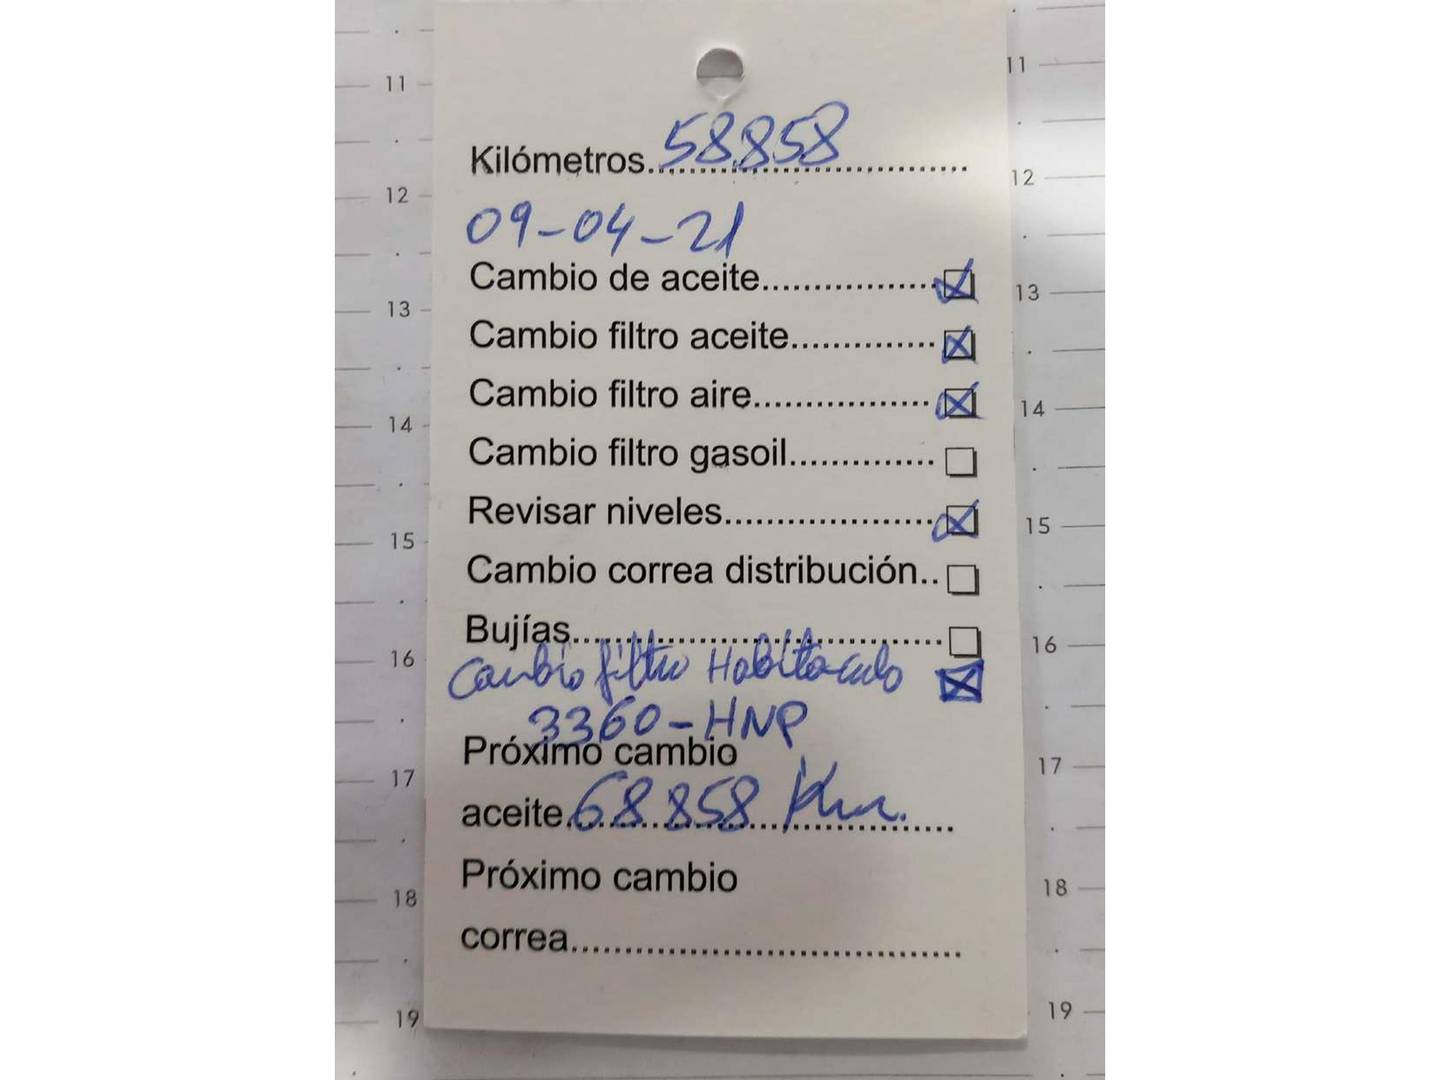 11
11
Kilómetros. 58.858
12
12
09-04-21
Cambio de aceite
13
13
Cambio filtro aceite
Cambio filtro aire
14
14
Cambio filtro gasoil
Revisar niveles
15
15
Cambio correa distribución..
Bujías
16
16
Cambio filtro Habitaculo
3360-HNP
Próximo cambio
17
17
aceite. 68.858 Km.
Próximo cambio
18
18
correa
19
19